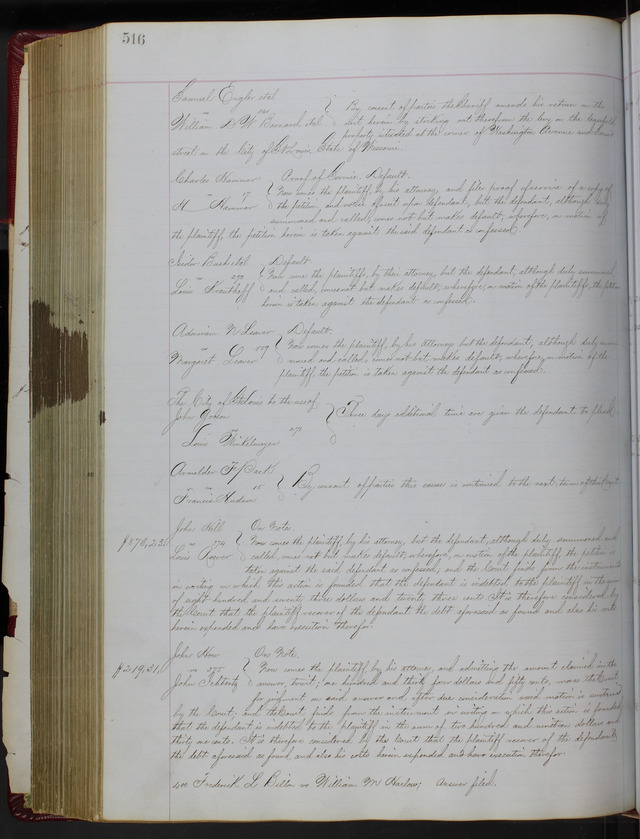 516
Samuel Engler et al
vs
William D W Barnard et al
By consent of parties the Sheriff amends his return on the
writ herein by striking out therefrom the levy on the
property situated at the corner of Washington Avenue and
street in the City of St Louis State of Missouri.
Charles Hammer Proof of Service. Default.
vs 97
H Hammer
Now comes the plaintiff, by his attorney, and files proof of service of a copy of
the petition and notice of suit upon defendant, but the defendant, although duly
summoned and called, comes not but makes default; wherefore, on motion of
the plaintiff, the petition herein is taken against the said defendant as confessed.
Isidor Bush et al Default
vs 279
Louis
Now come the plaintiffs, by their attorney, but the defendant, although duly summoned
and called, comes not but makes default; wherefore, on motion of the plaintiffs, the petition
herein is taken against the defendant as confessed.
Leaver Default.
vs 559
Margaret C Leaver
Now comes the plaintiff, by his Attorney but the defendant, although duly
moned and called, comes not but makes default; wherefore, on motion of the
plaintiff, the petition is taken against the defendant as confessed.
The City of St Louis to the use of
John Green
vs 271
Louis Winkelmeyer
Three days additional time are given the defendant to plead.
vs 15
Francis Hudson
By consent of parties this cause is continued to the next term of this Court
$870,23.
John Hill On Note
vs
Louis
Now comes the plaintiff, by his attorney, but the defendant, although duly summoned and
called, comes not but makes default; wherefore, on motion of the plaintiff the petition is
taken against the said defendant as confessed, and the Court finds from the instrument
in writing on which the action is founded that the defendant is indebted to the plaintiff in the sum
of eight hundred and seventy three dollars and twenty three cents. It is therefore considered by
the Court that the plaintiff recover of the defendant the debt aforesaid as found and also his costs
herein expended and have execution therefor.
$219,31.
John How On Note.
vs
John
Now comes the plaintiff, by his attorney, and admitting the amount claimed in the
answer, to wit; one hundred and thirty four dollars and fifty cents, moves the Court
for judgment on said answer and after due consideration said motion is sustained
by the Court, and the Court finds from the instrument in writing on which this action is founded
that the defendant is indebted to the plaintiff in the sum of two hundred and nineteen dollars and
thirty one cents. It is therefore considered by the Court that the plaintiff recover of the defendant
the debt aforesaid as found, and also his costs herein expended and have execution therefor.
Frederick L Billon vs William M Harlow; Answer filed.